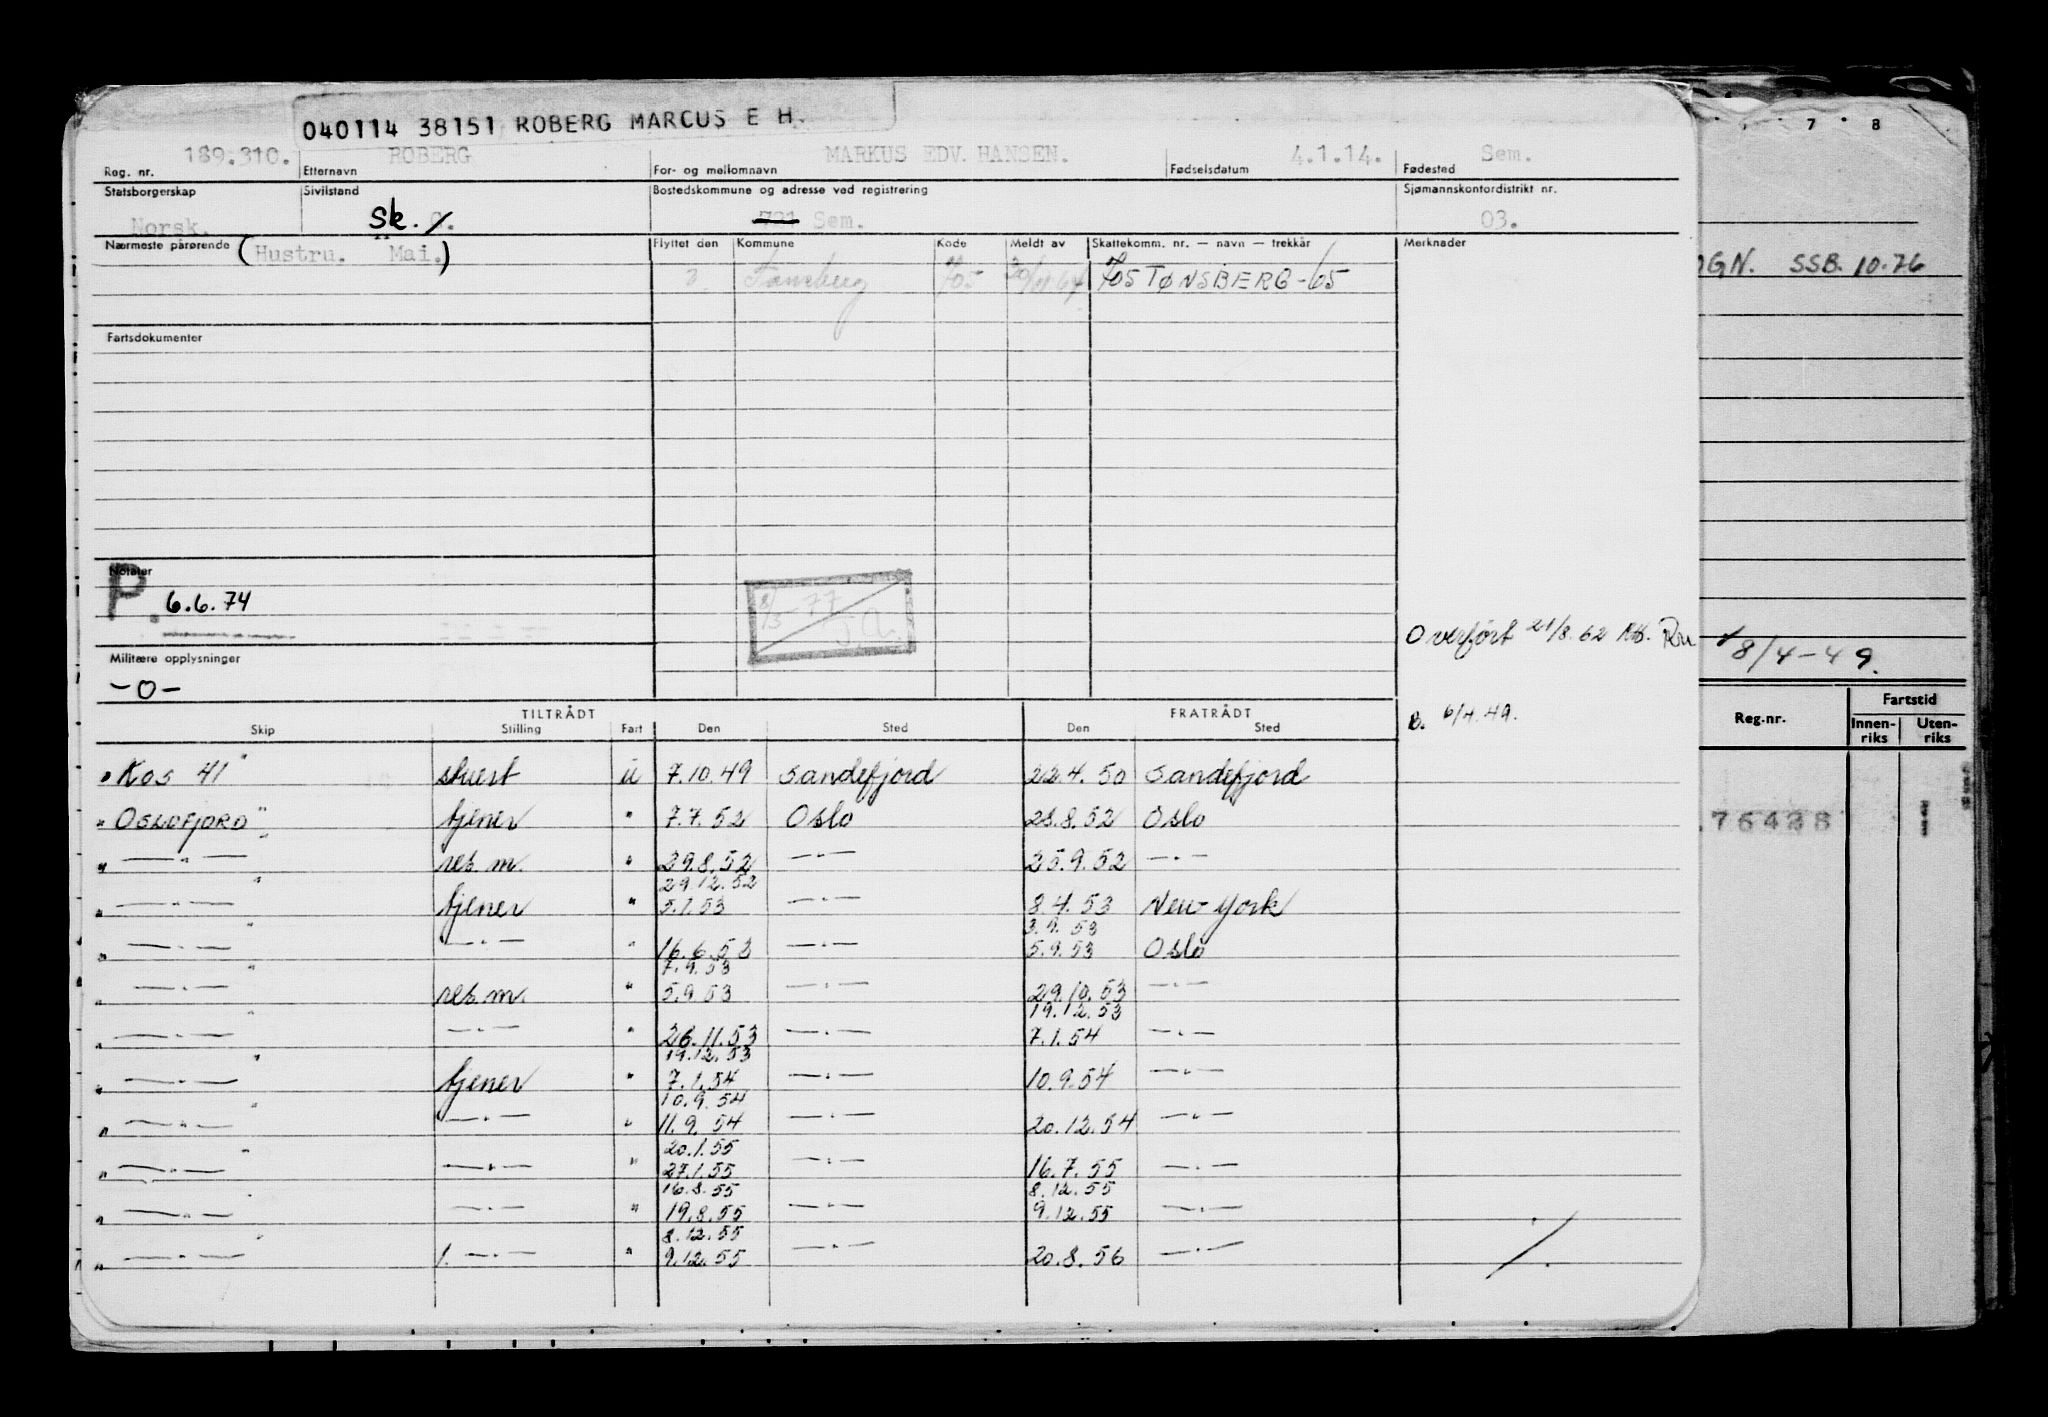 040114 38151 ROBERG MARCUS E H.
7 8
189.310. ROBERG MARKUS EDV. HANSEN. 4.1.14. Sem.
Reg. nr. Etternavn For- og mellomnavn Fødselsdatum Fødested
Statsborgerskap Sivilstand Bostedskommune og adresse ved registrering Sjømannskontordistrikt nr.
Norsk. Sk. 721 Sem. 03.
Nærmeste pårørende (Hustru. Mai.) Flyttet den Kommune Kode Meldt av Skattekomm. nr. — navn — trekkår Merknader
Tønsberg 705 705 TØNSBERG-65
OGN. SSB. 10.76
Fartsdokumenter
Notater
P. 6.6.74
8/3-77
Overført 21/8.62
8/4-49.
Militære opplysninger
-0-
TILTRÅDT FRATRÅDT
B. 6/4.49.
Skip Stilling Fart Den Sted Den Sted
Reg.nr. Fartstid
Innen-riks Uten-riks
" Kos 41 " stuert u 7.10.49 Sandefjord 22.4.50 Sandefjord
" OSLOFJORD " tjener " 7.7.52 Oslo 28.8.52 Oslo
76428
" —"— res.m. " 29.8.52 —"— 25.9.52 —"—
29.12.52
" —"— " tjener " 5.1.53 —"— 8.4.53 New York
3.9.53
" —"— " —"— " 16.6.53 —"— 5.9.53 Oslo
7.9.53
" —"— " res.m. " 5.9.53 —"— 29.10.53 —"—
19.12.53
" —"— —"— " 26.11.53 —"— 7.1.54 —"—
19.12.53
" —"— " tjener " 7.1.54 —"— 10.9.54 —"—
10.9.54
" —"— " —"— " 11.9.54 —"— 20.12.54 —"—
20.1.55
" —"— " —"— " 27.1.55 —"— 16.7.55 —"—
16.8.55 8.12.55
" —"— " —"— " 19.8.55 —"— 9.12.55 —"—
8.12.55
" —"— " 1. —"— " 9.12.55 —"— 20.8.56 —"—